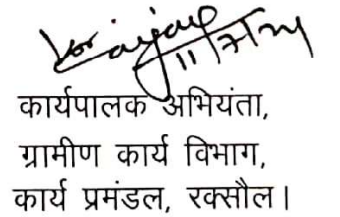 11/7/24
कार्यपालक अभियंता,
ग्रामीण कार्य विभाग,
कार्य प्रमंडल, रक्सौल।